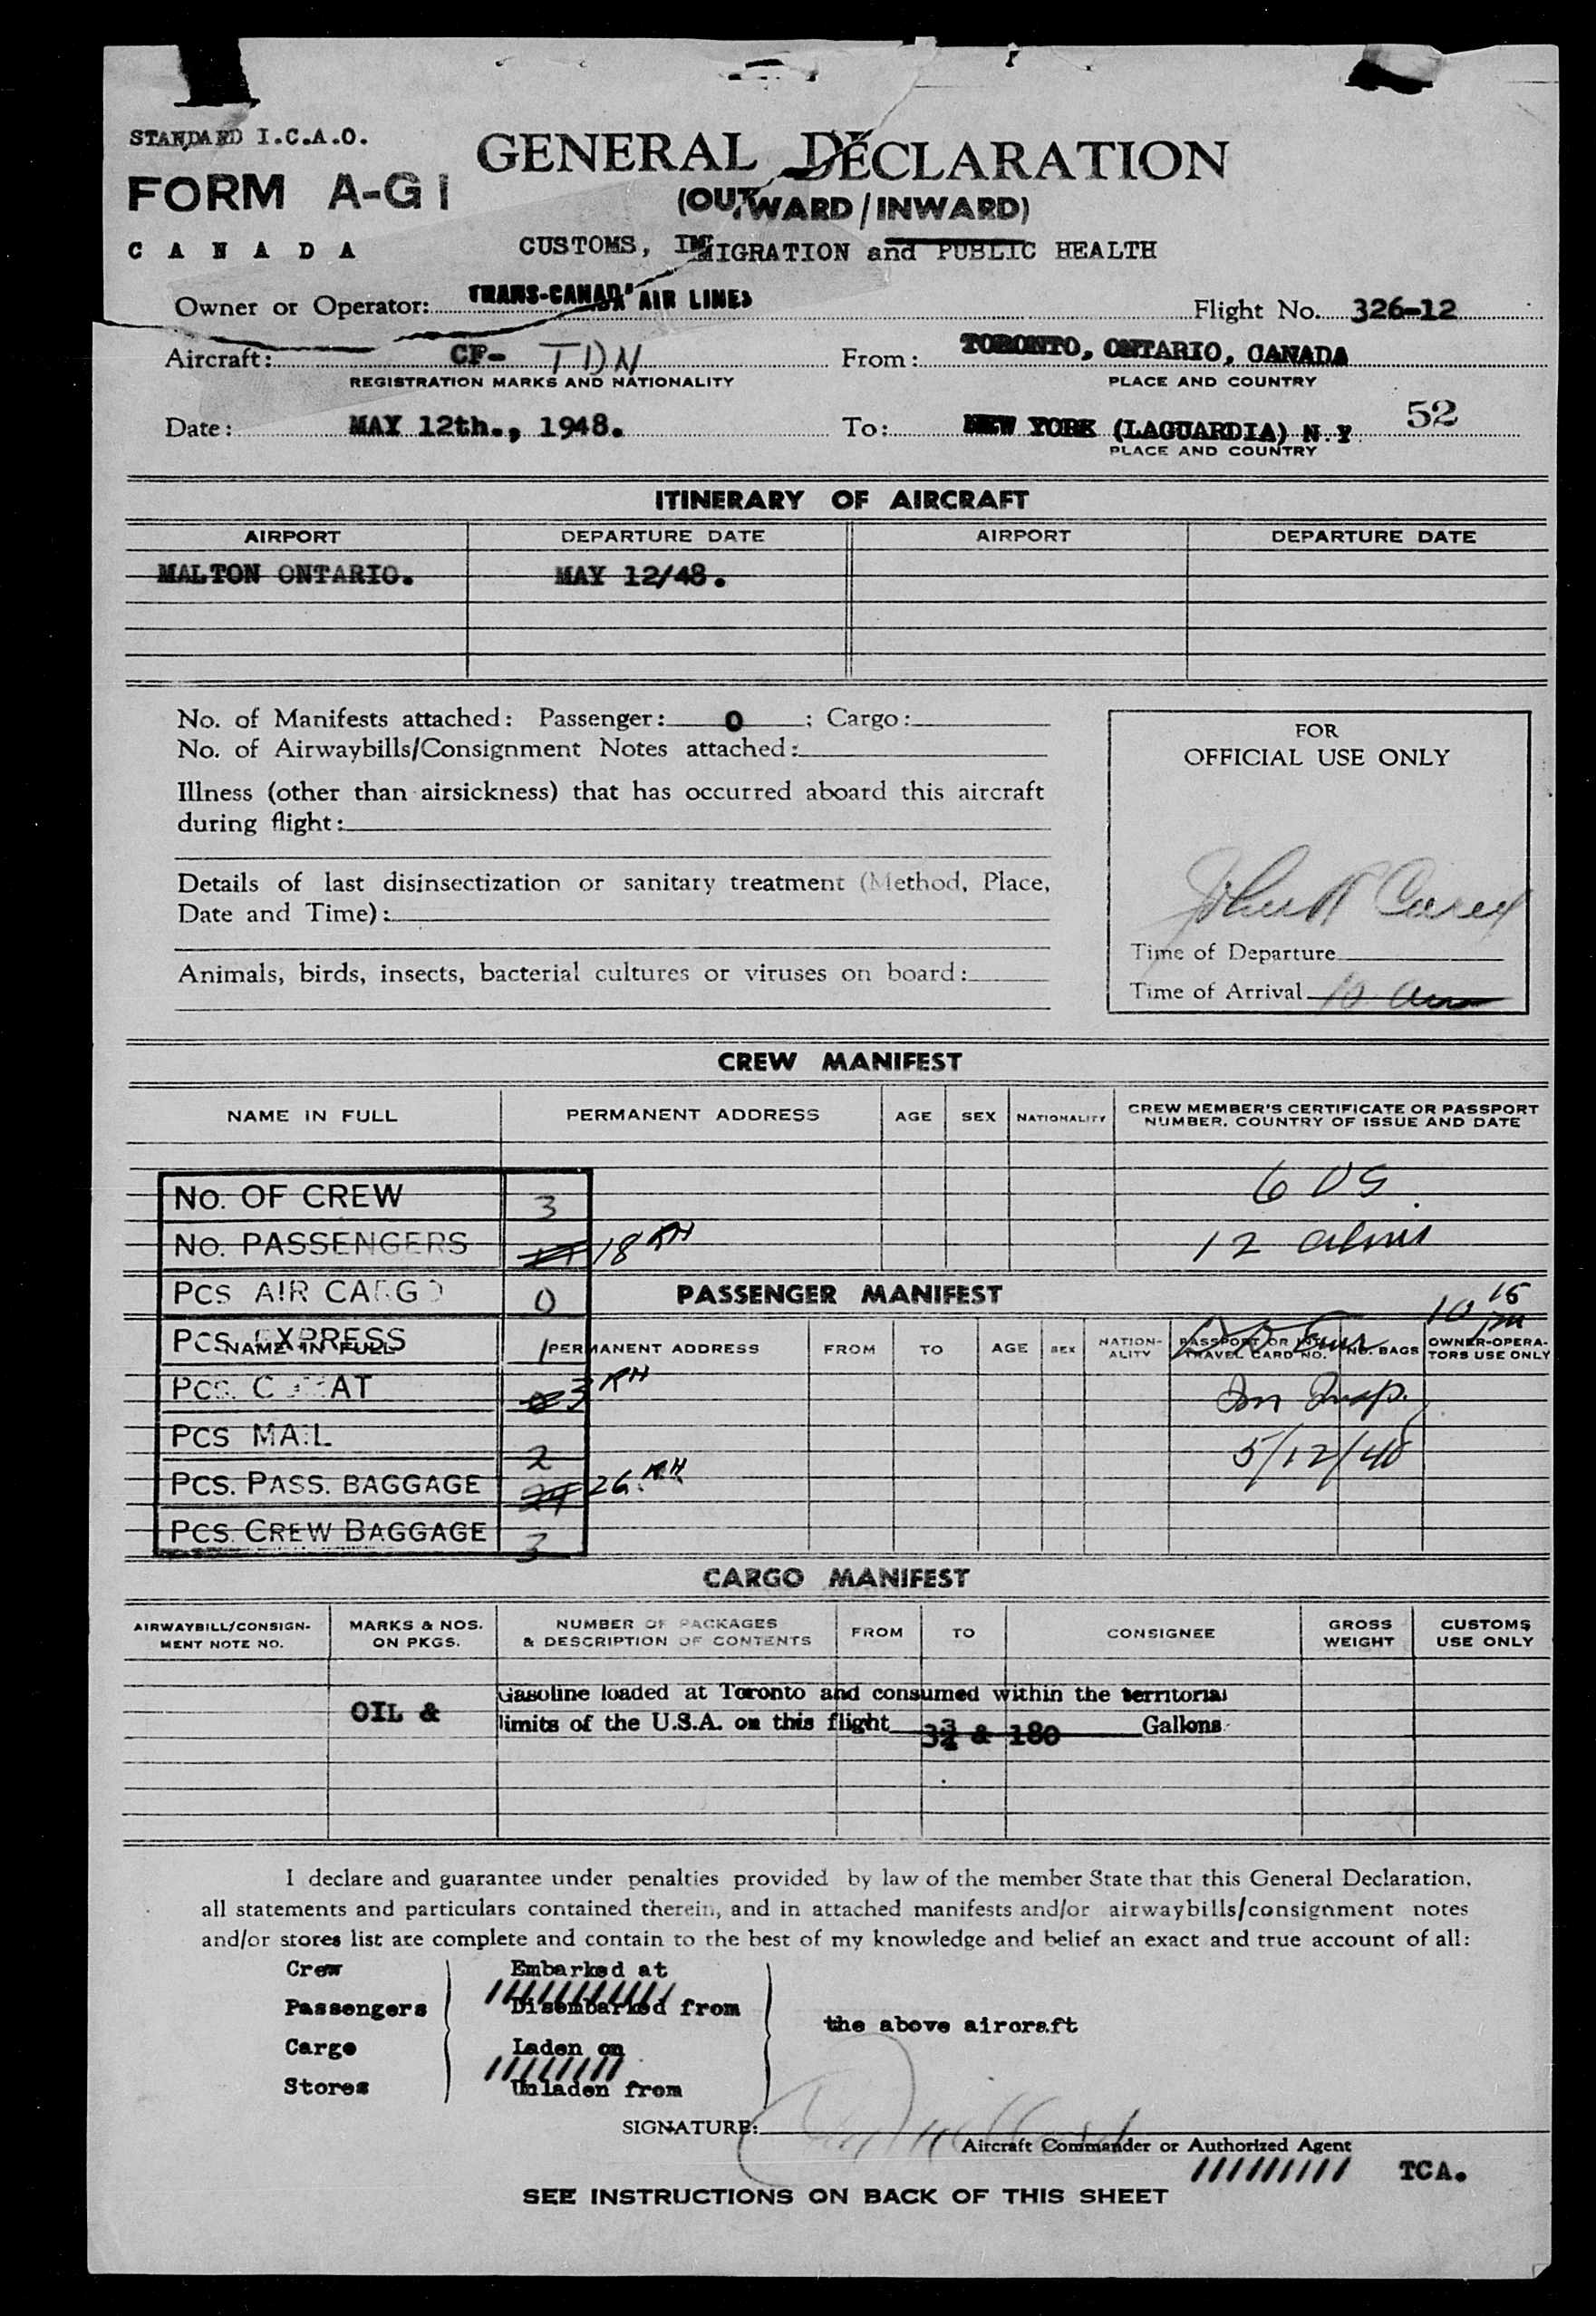 STANDARD I.C.A.O.
FORM A-G1
CANADA
GENERAL DECLARATION
(OUTWARD/INWARD)
CUSTOMS, IMMIGRATION and PUBLIC HEALTH
Owner or Operator: TRANS-CANADA AIR LINES
Flight No. 326-12
Aircraft: CF- TDN
REGISTRATION MARKS AND NATIONALITY
From: TORONTO, ONTARIO, CANADA
PLACE AND COUNTRY
Date: MAY 12th., 1948.
To: NEW YORK (LAGUARDIA) N.Y. 52
PLACE AND COUNTRY
ITINERARY OF AIRCRAFT
AIRPORT DEPARTURE DATE AIRPORT DEPARTURE DATE
MALTON ONTARIO. MAY 12/48.
No. of Manifests attached: Passenger: 0 ; Cargo:
No. of Airwaybills/Consignment Notes attached:
Illness (other than airsickness) that has occurred aboard this aircraft
during flight:
Details of last disinsectization or sanitary treatment (Method, Place,
Date and Time):
Animals, birds, insects, bacterial cultures or viruses on board:
FOR
OFFICIAL USE ONLY
Time of Departure
Time of Arrival 10
CREW MANIFEST
NAME IN FULL PERMANENT ADDRESS AGE SEX NATIONALITY CREW MEMBER'S CERTIFICATE OR PASSPORT
NUMBER, COUNTRY OF ISSUE AND DATE
No. OF CREW 3
6 US
No. PASSENGERS 18 RH
12 aliens
PCS AIR CARGO 0
PASSENGER MANIFEST
10 15
PCS. EXPRESS 1
NAME IN FULL PERMANENT ADDRESS FROM TO AGE SEX NATION-
ALITY PASSPORT OR
TRAVEL CARD NO. NO. BAGS OWNER-OPERA-
TORS USE ONLY
PCS. COMAT 3 RH
Im Insp.
PCS MAIL 2
5/12/48
PCS. PASS. BAGGAGE 26 RH
PCS. CREW BAGGAGE 3
CARGO MANIFEST
AIRWAYBILL/CONSIGN-
MENT NOTE NO. MARKS & NOS.
ON PKGS. NUMBER OF PACKAGES
& DESCRIPTION OF CONTENTS FROM TO CONSIGNEE GROSS
WEIGHT CUSTOMS
USE ONLY
OIL & Gasoline loaded at Toronto and consumed within the territorial
limits of the U.S.A. on this flight 3¾ & 180 Gallons
I declare and guarantee under penalties provided by law of the member State that this General Declaration,
all statements and particulars contained therein, and in attached manifests and/or airwaybills/consignment notes
and/or stores list are complete and contain to the best of my knowledge and belief an exact and true account of all:
Crew Embarked at
Passengers Disembarked from
the above aircraft
Cargo Laden on
Stores Unladen from
SIGNATURE:
Aircraft Commander or Authorized Agent
TCA.
SEE INSTRUCTIONS ON BACK OF THIS SHEET